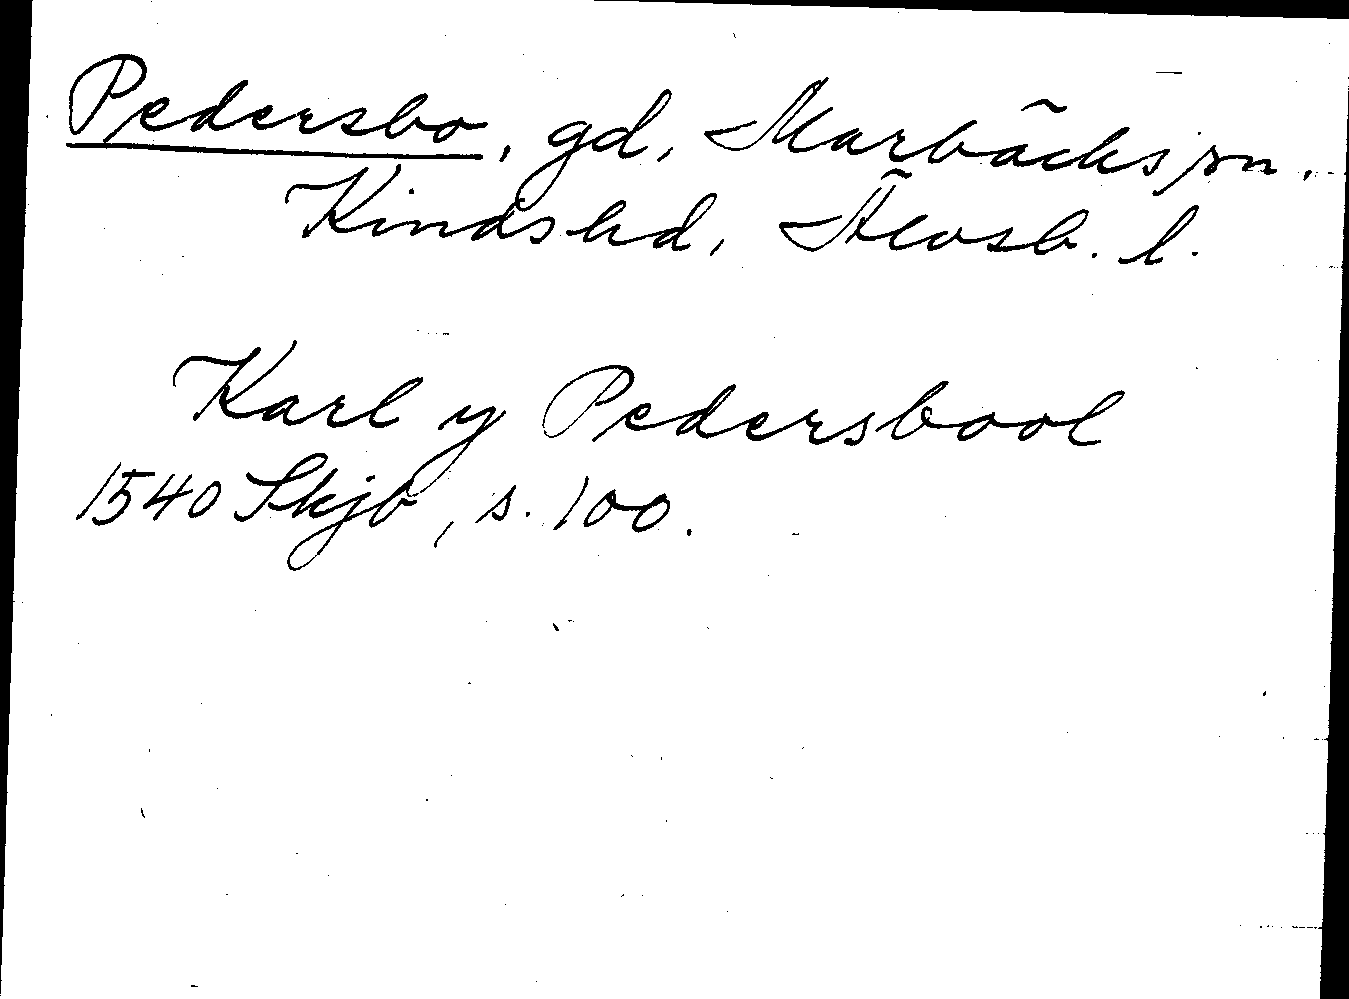 Pedersbo, gd, Marbäcks sn.
Kinds hd, Älvsb. l.
Karl y Pedersbool
1540 Skjb, s. 100.